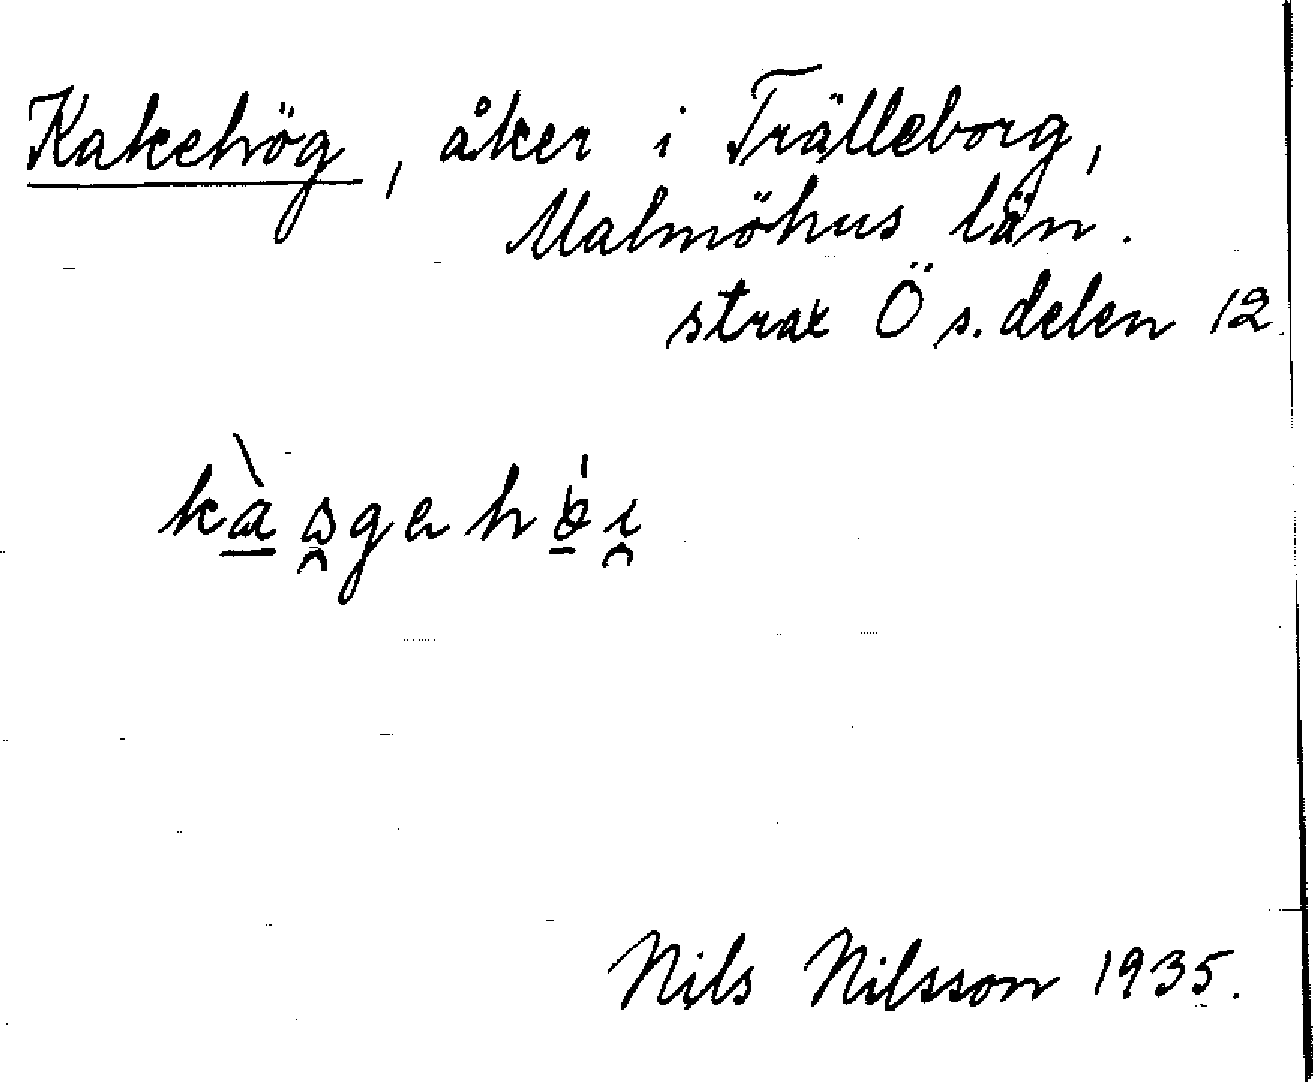 Kakehög, åker i Trälleborg,
Malmöhus län.
strax Ö s. delen 12
Nils Nilsson 1935.